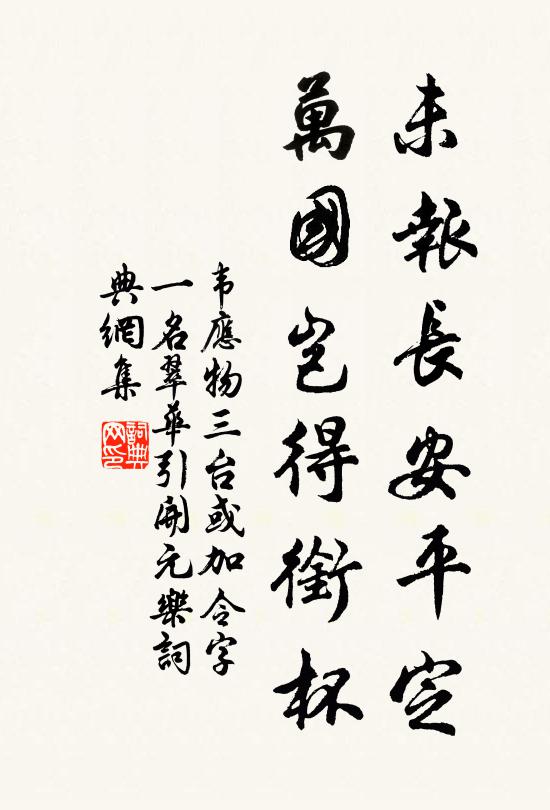 未報長安平定
萬國豈得銜杯
韦應物三台或加令字
一名翠華引開元樂詞
典網集
詞典
网印